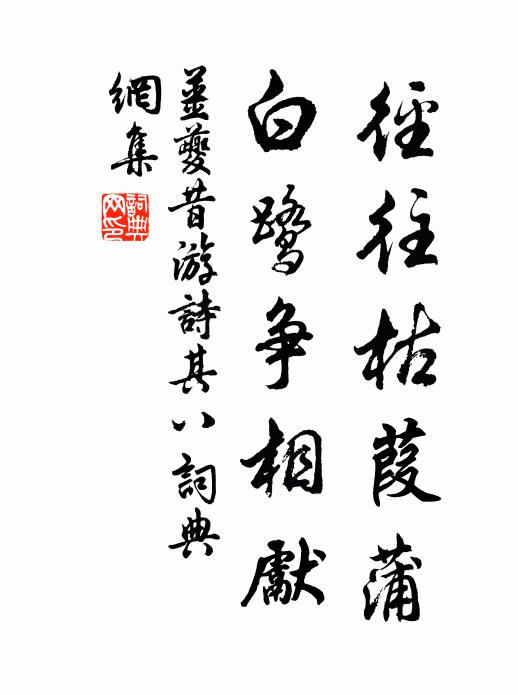 徑往枯葭蒲
白鹭争相獻
姜夔昔游詩其八詞典
網集
詞典
网印